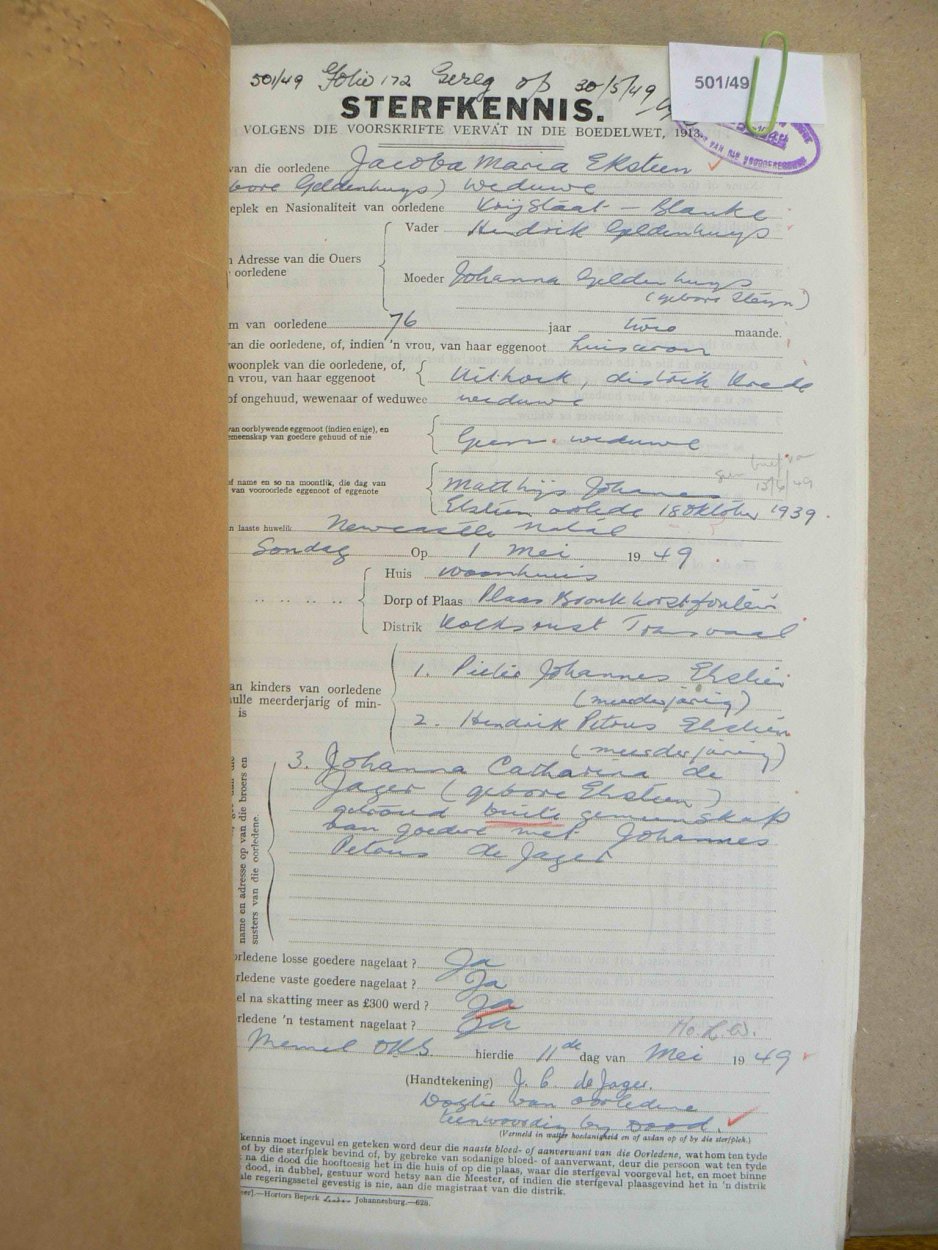 501/49 Folio 172 Gereg op 30/5/49
501/49
STERFKENNIS.
VOLGENS DIE VOORSKRIFTE VERVAT IN DIE BOEDELWET, 1913.
van die oorledene Jacoba Maria Eksteen
bore Geldenhuys) weduwe
eplek en Nasionaliteit van oorledene Vrystaat – Blanke
Vader Hendrik Geldenhuys
Adresse van die Ouers
oorledene
Moeder Johanna Geldenhuys
(gebore Steyn)
m van oorledene 76 jaar twee maande.
van die oorledene, of, indien 'n vrou, van haar eggenoot huisvrou
woonplek van die oorledene, of,
n vrou, van haar eggenoot Uithoek, distrik Vrede
of ongehuud, wewenaar of weduwee weduwe
van oorblywende eggenoot (indien enige), en
emeenskap van goedere gehuud of nie
Geen. weduwe
13/6/49
f name en so na moontlik, die dag van
van vooroorlede eggenoot of eggenote
Matthys Johannes
Eksteen oorlede 18 Oktober 1939
n laaste huwelik Newcastle Natal
Sondag Op 1 Mei 1949
Huis woonhuis
Dorp of Plaas Plaas Bronkhorstfontein
Distrik Volksrust Transvaal
1. Pieter Johannes Eksteen
an kinders van oorledene
ulle meerderjarig of min-
is
(meerderjarig)
2. Hendrik Petrus Eksteen
(meerderjarig)
3. Johanna Catharina de
Jager (gebore Eksteen)
getroud buite gemeenskap
van goedere met Johannes
Petrus de Jager
name en adresse op van die broers en
susters van die oorledene.
orledene losse goedere nagelaat ? Ja
rledene vaste goedere nagelaat ? Ja
el na skatting meer as £300 werd ? Ja
rledene 'n testament nagelaat ? Ja
Memel OVS. hierdie 11de dag van Mei 1949
(Handtekening) J. C. de Jager.
Dogter van oorledene
teenwoordig by dood.
(Vermeld in watter hoedanigheid en of aldan op of by die sterfplek.)
kennis moet ingevul en geteken word deur die naaste bloed- of aanverwant van die Oorledene, wat hom ten tyde
of by die sterfplek bevind of, by gebreke van sodanige bloed- of aanverwant, deur die persoon wat ten tyde
na die dood die hooftoesig het in die huis of op die plaas, waar die sterfgeval voorgeval het, en moet binne
dood, in dubbel, gestuur word hetsy aan die Meester, of indien die sterfgeval plaasgevind het in 'n distrik
ale regeringssetel gevestig is nie, aan die magistraat van die distrik.
eer].—Hortors Beperk Johannesburg.—628.